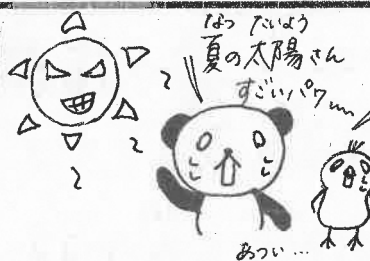 なつ たいよう
夏の太陽さん
すごいパワー
あつい…